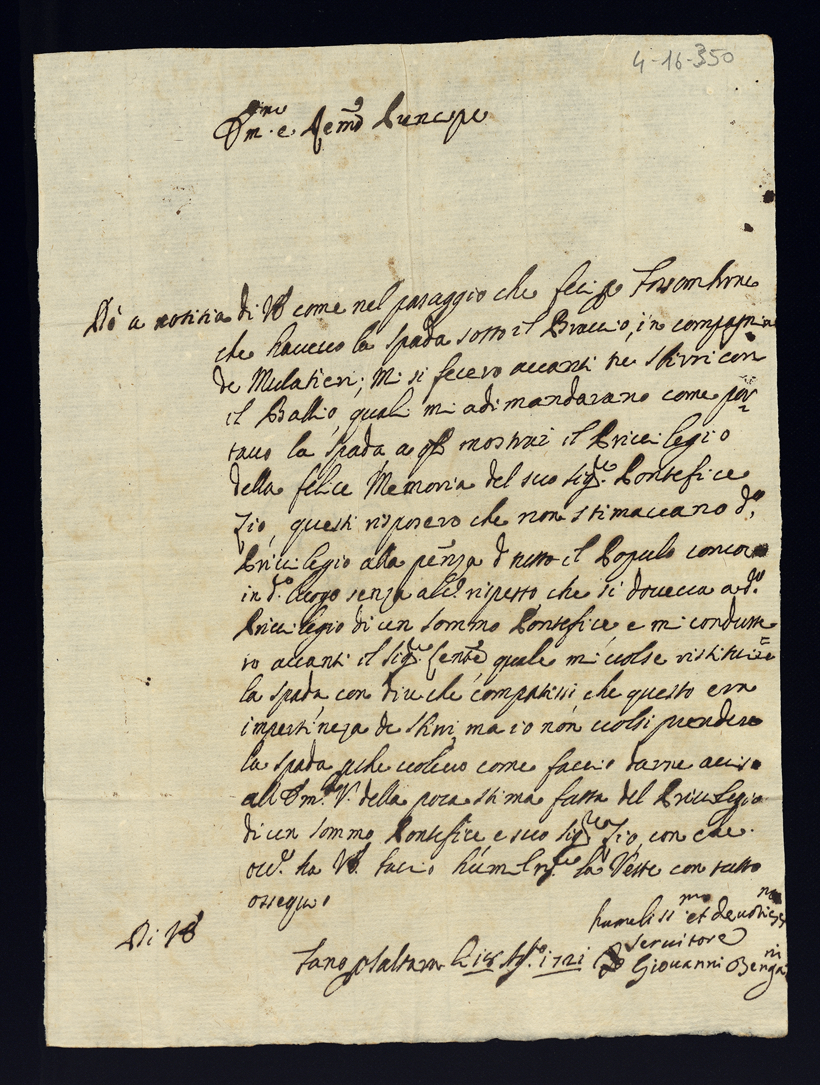 4-16-350
Em.mo e Rev.mo Principe
Dò a notitia di VE come nel pasaggio che feci p Fossombrone
che havevo la spada sotto il Braccio, in compagnia
de Mulatieri; Mi si fecero avanti tre sbirri con
il Balio, quali mi adimandarano come por=
tavo la spada, a qli mostrai il Privilegio
della felice Memoria del suo sig.re Pontefice
Zio, questi risposero che non stimavano d.o
Privilegio alla presenza d tutto il Popolo
in d.o luogo senza alc.o rispetto che si doveva a d.o
Privilegio di un sommo Pontefice e mi condusse
ro avanti il sig.re quale mi volse ristituire
la spada, con dire che compatissi che questo era
impertineza de sbirri, ma io non volsi prendere
la spada, pche volevo come faccio darne aviso
all Em.a V. della poca stima fatta del Privilegio
di un sommo Pontefice e suo sig.re Zio, con che
ha VE. faccio humilm.te la Veste con tutto
ossequio
Di VE
humilissimo et devotiss.mo
servitore
Fano p Saltara li 18 Ag.to 1721 D Giovanni